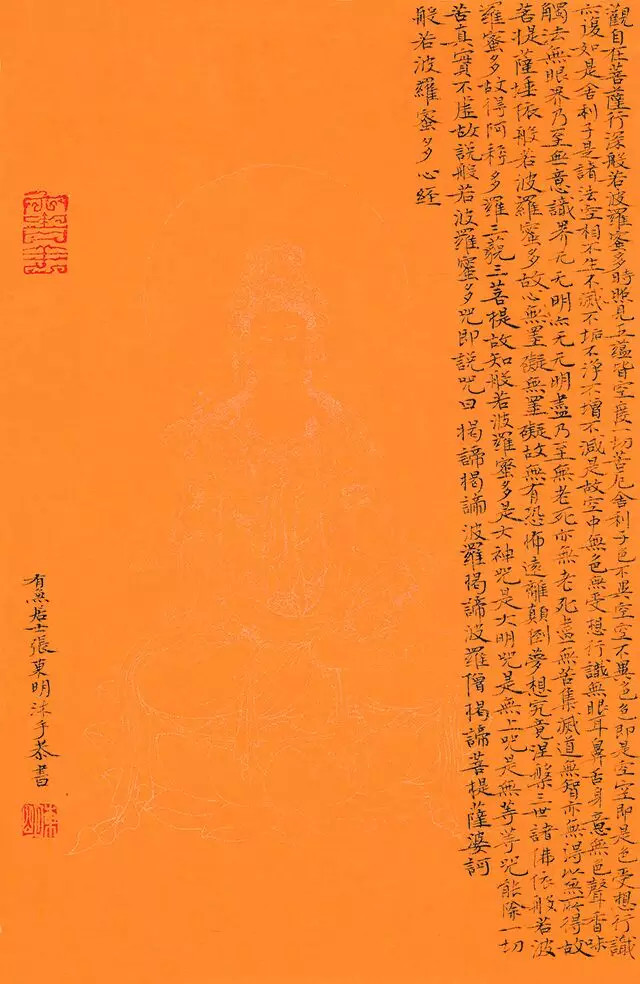 觀自在菩薩行深般若波羅蜜多時照見五蘊皆空度一切苦厄舍利子色不異空空不異色色即是空空即是色受想行識
亦復如是舍利子是諸法空相不生不滅不垢不淨不增不減是故空中無色無受想行識無眼耳鼻舌身意無色聲香味
觸法無眼界乃至無意識界无无明亦无无明盡乃至無老死亦無老死盡無苦集滅道無智亦無得以無所得故
菩提薩埵依般若波羅蜜多故心無罣礙無罣礙故無有恐怖遠離顛倒夢想究竟涅槃三世諸佛依般若波
羅蜜多故得阿耨多羅三藐三菩提故知般若波羅蜜多是大神咒是大明咒是無上咒是無等等咒能除一切
苦真實不虛故說般若波羅蜜多咒即說咒曰揭諦揭諦波羅揭諦波羅僧揭諦菩提薩婆訶
般若波羅蜜多心經
有無居士張東明沐手恭書